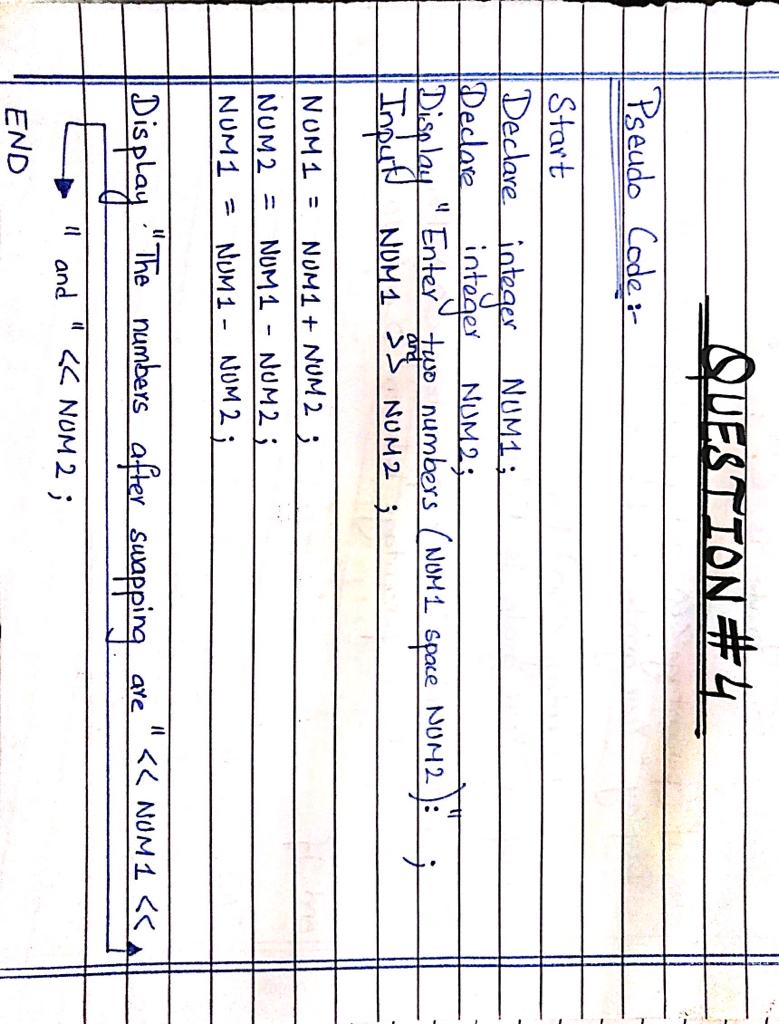 QUESTION #4
Pseudo Code:-
Start
Declare integer NUM1;
Declare integer NUM2;
Display "Enter two numbers (NUM1 space NUM2):" ;
Input NUM1 >> and NUM2 ;
NUM1 = NUM1 + NUM2 ;
NUM2 = NUM1 - NUM2 ;
NUM1 = NUM1 - NUM2 ;
Display "The numbers after swapping are " << NUM1 <<
" and " << NUM2 ;
END